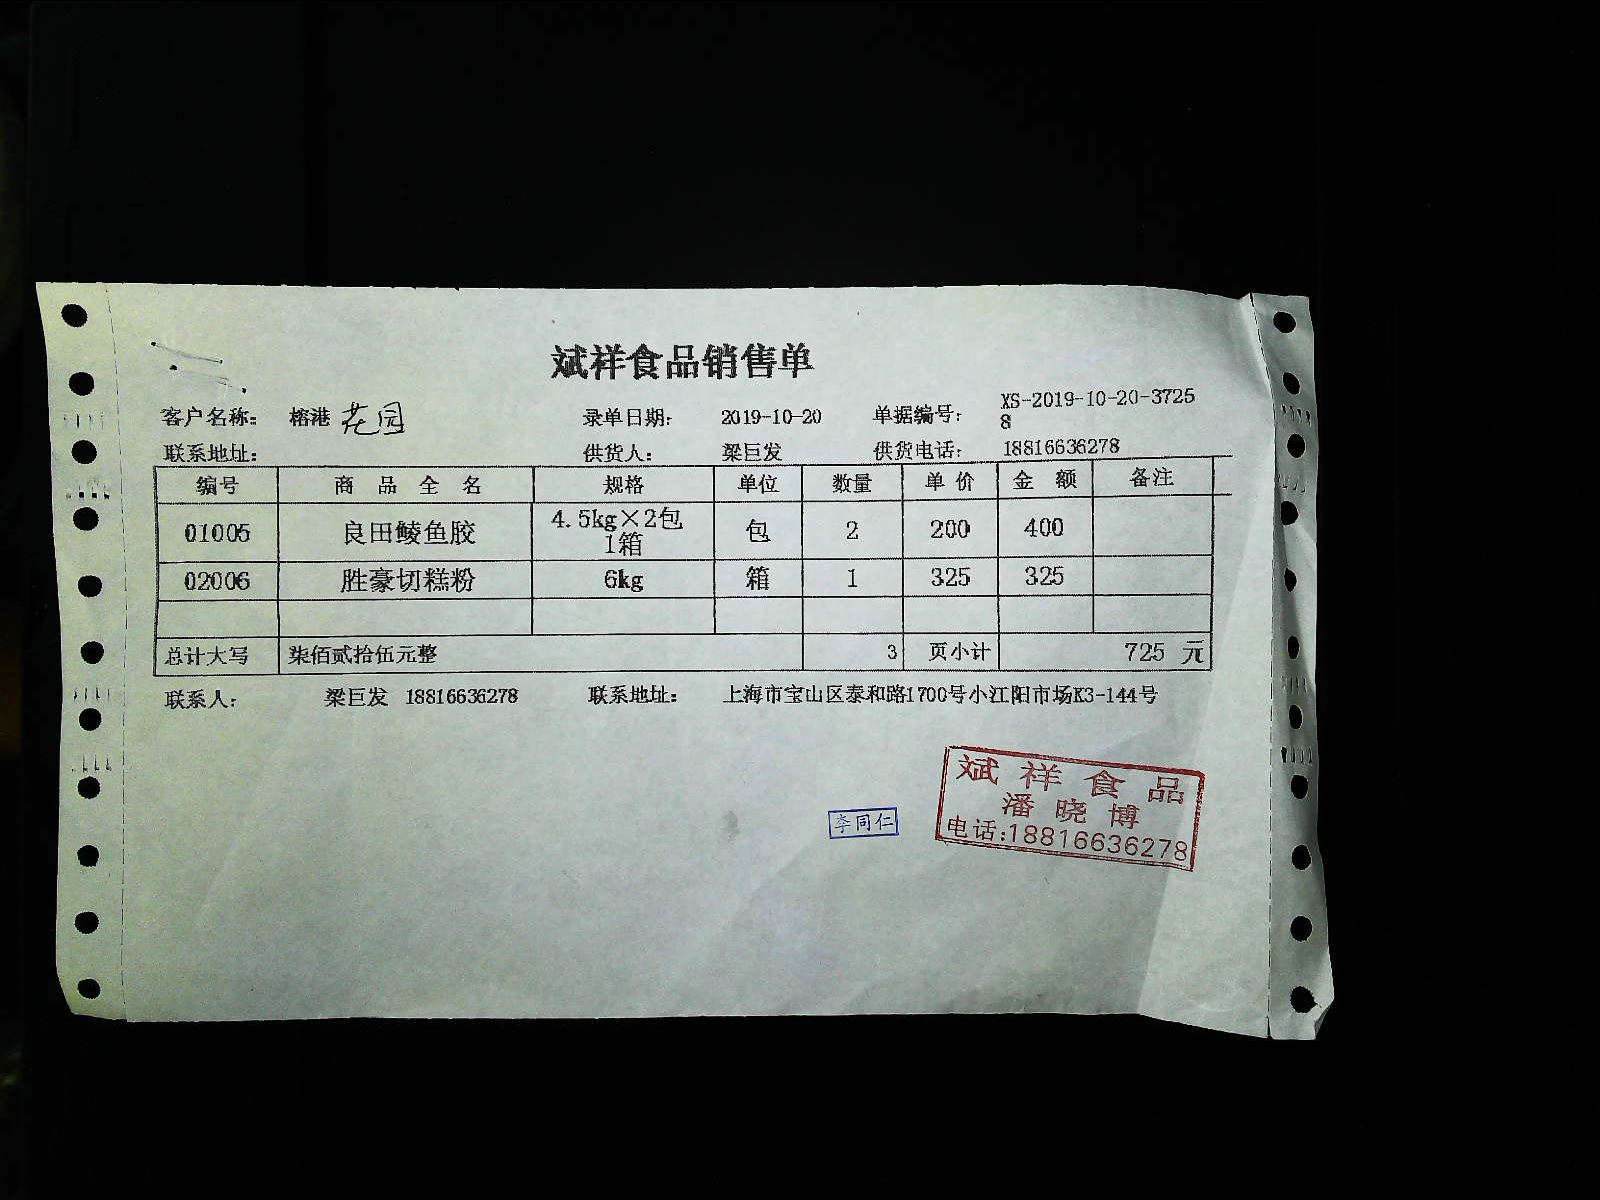 斌祥食品销售单
客户名称： 榕港 花园 录单日期： 2019-10-20 单据编号： XS-2019-10-20-3725
8
联系地址： 供货人： 梁巨发 供货电话： 18816636278
编号 商品全名 规格 单位 数量 单价 金额 备注
01005 良田鲮鱼胶 4.5kg×2包 包 2 200 400
1箱
02006 胜豪切糕粉 6kg 箱 1 325 325
总计大写 柒佰贰拾伍元整 3 页小计 725 元
联系人： 梁巨发 18816636278 联系地址： 上海市宝山区泰和路1700号小江阳市场K3-144号
斌祥食品
潘晓博
电话:18816636278
李同仁